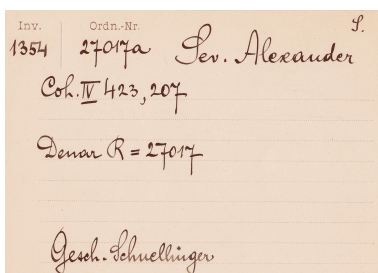 Inv. Ordn.-Nr. S.
1354 27017a Sev. Alexander
Coh. IV 423, 207
Denar R = 27017
Gesch. Schnellinger